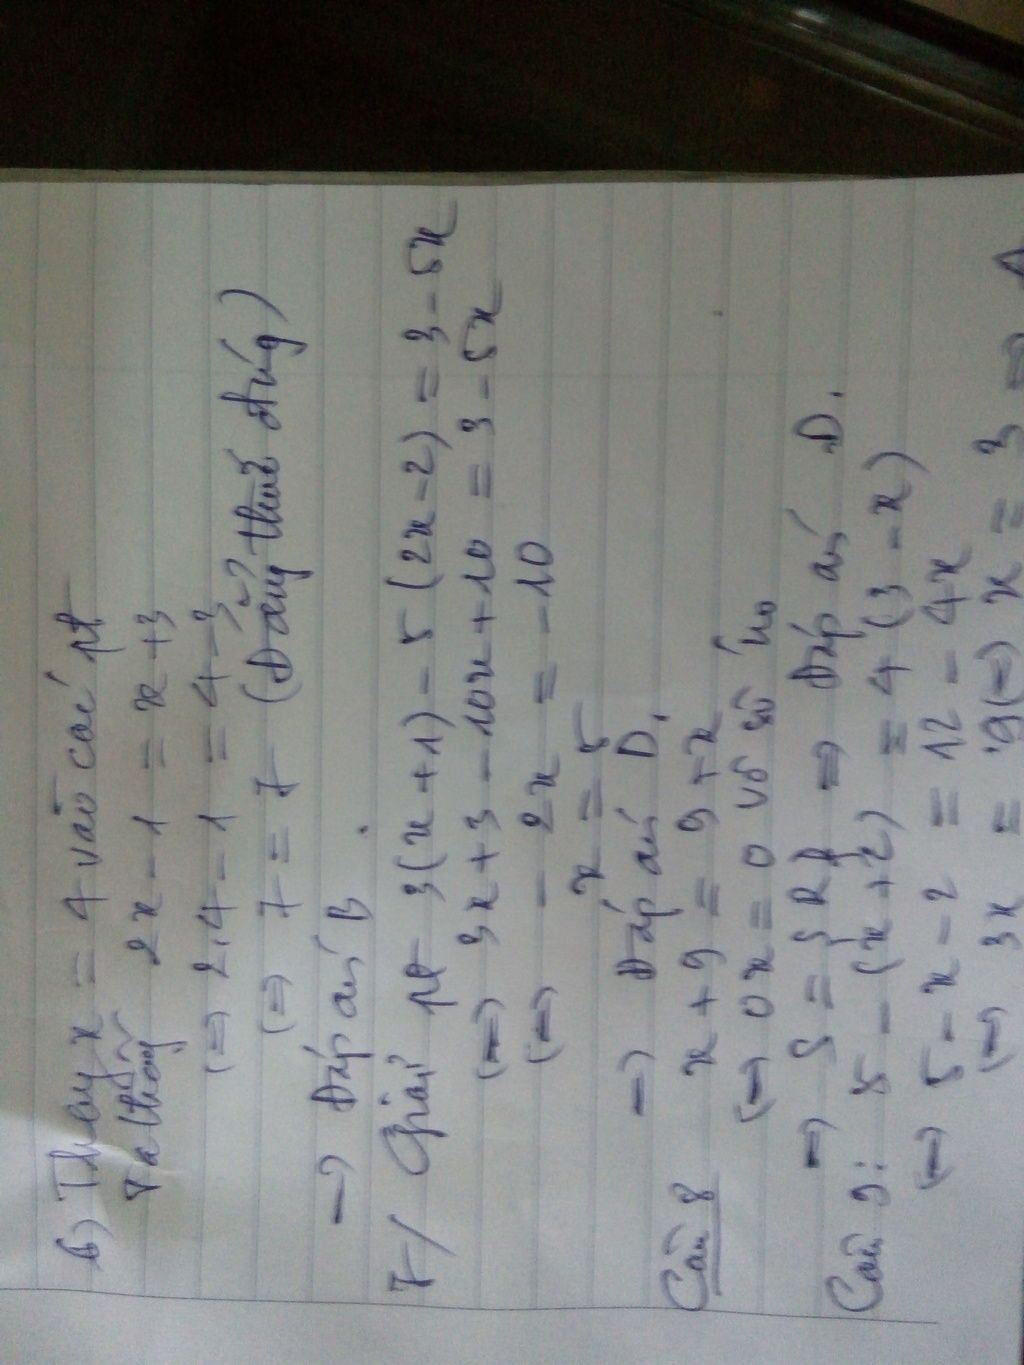 6) Thay x = 4 vào các pt
Ta thấy 2x - 1 = x + 3
(=) 2.4 - 1 = 4 - 3
(=) 7 = 7 (Đẳng thức đúng)
=) Đáp án B
7/ Giải pt 3(x+1) - 5(2x-2) = 3 - 5x
(=) 3x + 3 - 10x + 10 = 3 - 5x
(=) - 2x = -10
x = 5
=) Đáp án D.
Câu 8 x + 9 = 9 + x
(=) 0x = 0 vô số no
=) S = {R} =) Đáp án D.
Câu 9: 5 - (x + 2) = 4(3 - x)
(=) 5 - x - 2 = 12 - 4x
(=) 3x = 9 (=) x = 3 =) A